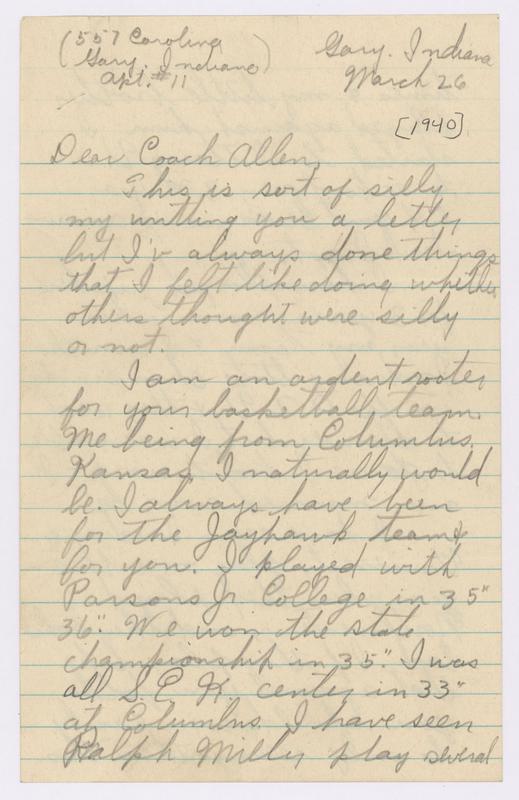 (557 Carolina
Gary, Indiana)
Apt. #11
Gary, Indiana
March 26
[1940]
Dear Coach Allen,
This is sort of silly
my writting you a letter
but I'v always done things
that I felt like doing whether
others thought were silly
or not.
I am an ardent rooter
for your basketball team.
Me being from Columbus,
Kansas, I naturally would
be. I always have been
for the Jayhawk team &
for you. I played with
Parsons Jr. College in 35"
36". We won the state
championship in 35". I was
all S.E.K. center in 33"
at Columbus. I have seen
Ralph Miller play several